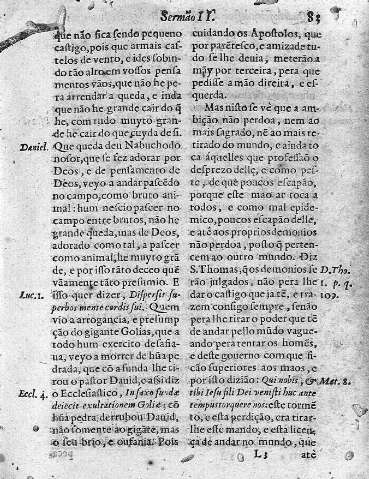 Sermão II.
83
que não fica sendo pequeno
castigo, pois que armais cas-
telos de vento, e ides sobin-
do tão alto em vossos pensa
mentos vãos, que não he pe
ra arrendar a queda, e inda
que não he grande cair do q̃
he, com tudo muyto gran-
de he cair do que cuyda de si.
Daniel.
Que queda deu Nabuchodo
nosor, que se fez adorar por
Deos, e de pensamento de
Deos, veyo a andar pascẽdo
no campo, como bruto ani-
mal: hum nescio pascer no
campo entre brutos, não he
grande q̃eda, mas de Deos,
adorado como tal, a pascer
como animal, he muyto grã
de, e por isso tão deceo quẽ
vãamente tãto presumio. E
Luc. 1.
isso quer dizer, Dispersit su-
perbos mente cordis sui. Quem
vio a arrogãcia, e presump-
ção do gigante Golias, que a
todo hum exercito desafia-
ua, veyo a morrer de hũa pe
drada, que cõ a funda lhe ti-
rou o pastor Dauid, o assi diz
Eccl. 4.
o Ecclesiastico, In saxo fundæ
deiecit exultationem Goliæ; cõ
hũa pedra, derrubou Dauid,
não somente ao gigãte, mas
o seu brio, e oufania. Pois
cuidando os Apostolos, que
por parẽtesco, e amizade tu-
do se lhe deuia, meterão a
mãy por terceira, pera que
pedisse a mão direita, e es-
querda.
Mas nisto se vè que a am-
bição não perdoa, nem ao
mais sagrado, nẽ ao mais re-
tirado do mundo, e ainda to
ca áquelles que professão o
desprezo delle, e como pes-
te, de que poucos escapão,
porque este mào ar toca a
todos, e como mal epide-
mico, poucos escapão delle,
e atè aos proprios demonios
não perdoa, posto q̃ perten-
cem ao outro mundo. Diz
S. Thomas, q̃ os demonios se
D. Tho.
rão julgados, não pera lhe
1. p. q.
dar o castigo que ja tẽ, e trà-
109.
zem consigo sempre, senão
pera lhe tirar o poder que tẽ
de andar pello mũdo vague-
ando pera tentar os homẽs,
e deste gouerno com que fi-
cão superiores aos maos, e
por isto dizião: Qui nobis, &
Mat. 8.
tibi Iesu fili Dei venisti huc ante
tempus torquere nos: este tormẽ
to, e esta perdição, era tirar-
lhe esse mando, e esta licen-
ça de andar no mundo, que
L 3
atè